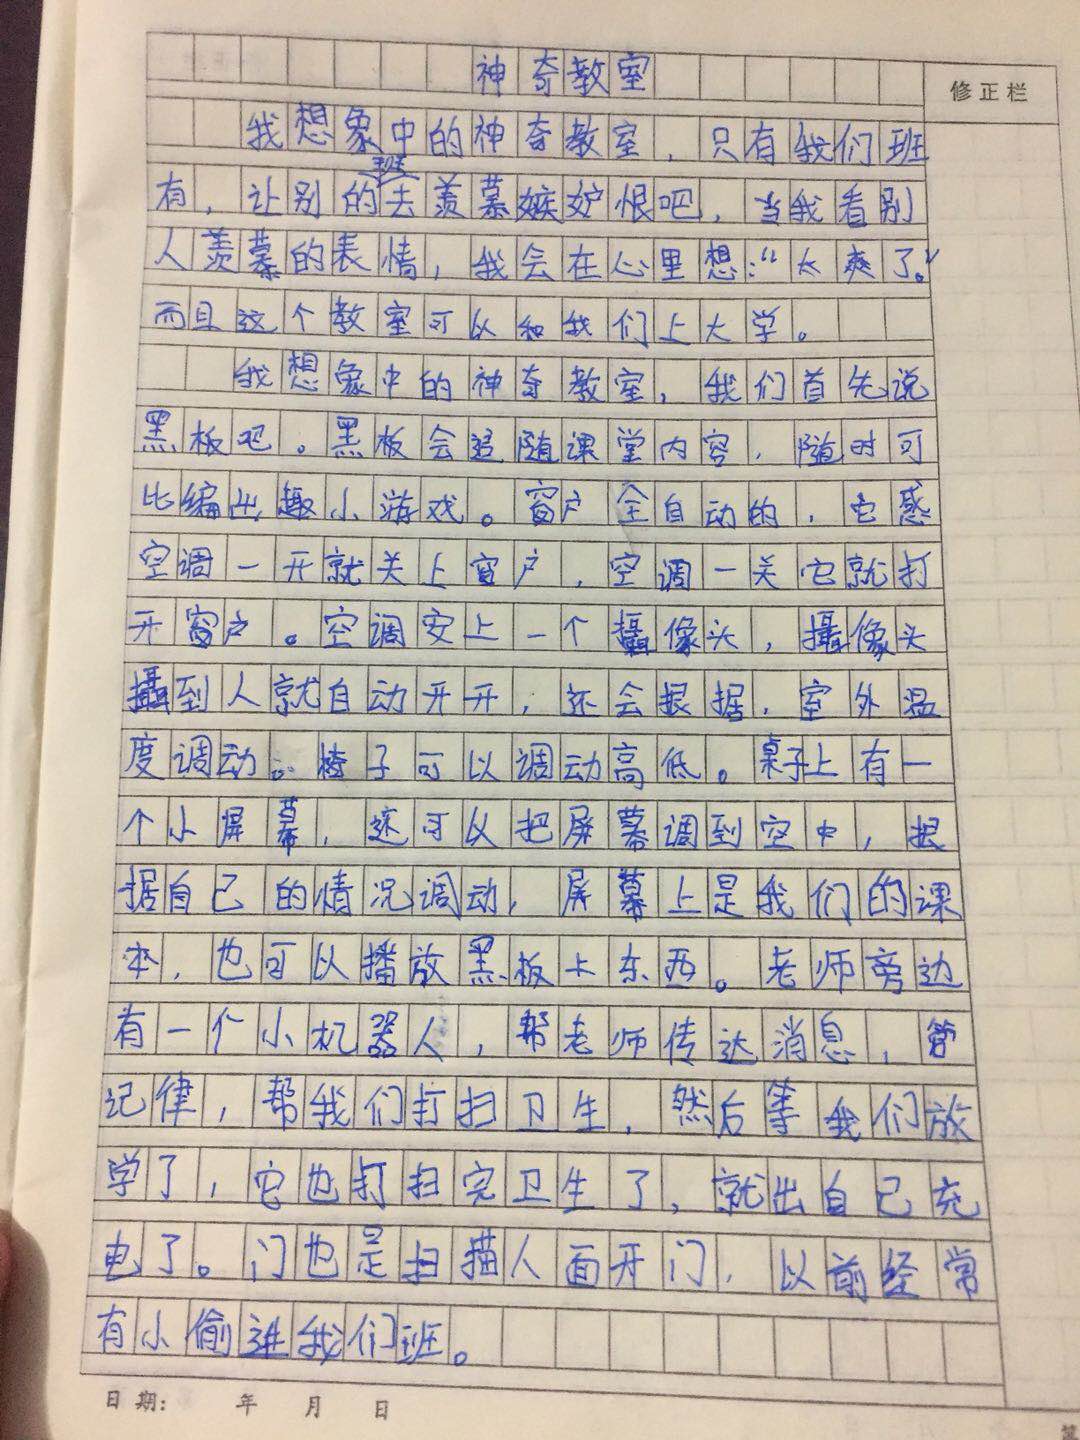 神奇教室
修正栏
我想象中的神奇教室，只有我们班
有，让别的班去羡慕嫉妒恨吧，当我看别
人羡慕的表情，我会在心里想：“太爽了。”
而且这个教室可以和我们上大学。
我想象中的神奇教室，我们首先说
黑板吧。黑板会追随课堂内容，随时可
比编出趣小游戏。窗户全自动的，它惑
空调一开就关上窗户，空调一关它就打
开窗户。空调安上一个攝像头，攝像头
攝到人就自动开开，还会根据，室外温
度调动。椅子可以调动高低。桌子上有一
个小屏幕，还可以把屏幕调到空中，根
据自己的情况调动，屏幕上是我们的课
本，也可以播放黑板上东西。老师旁边
有一个小机器人，帮老师传达消息，管
记律，帮我们打扫卫生，然后等我们放
学了，它也打扫完卫生了，就出自己充
电了。门也是扫描人面开门，以前经常
有小偷进我们班。
日期： 年 月 日